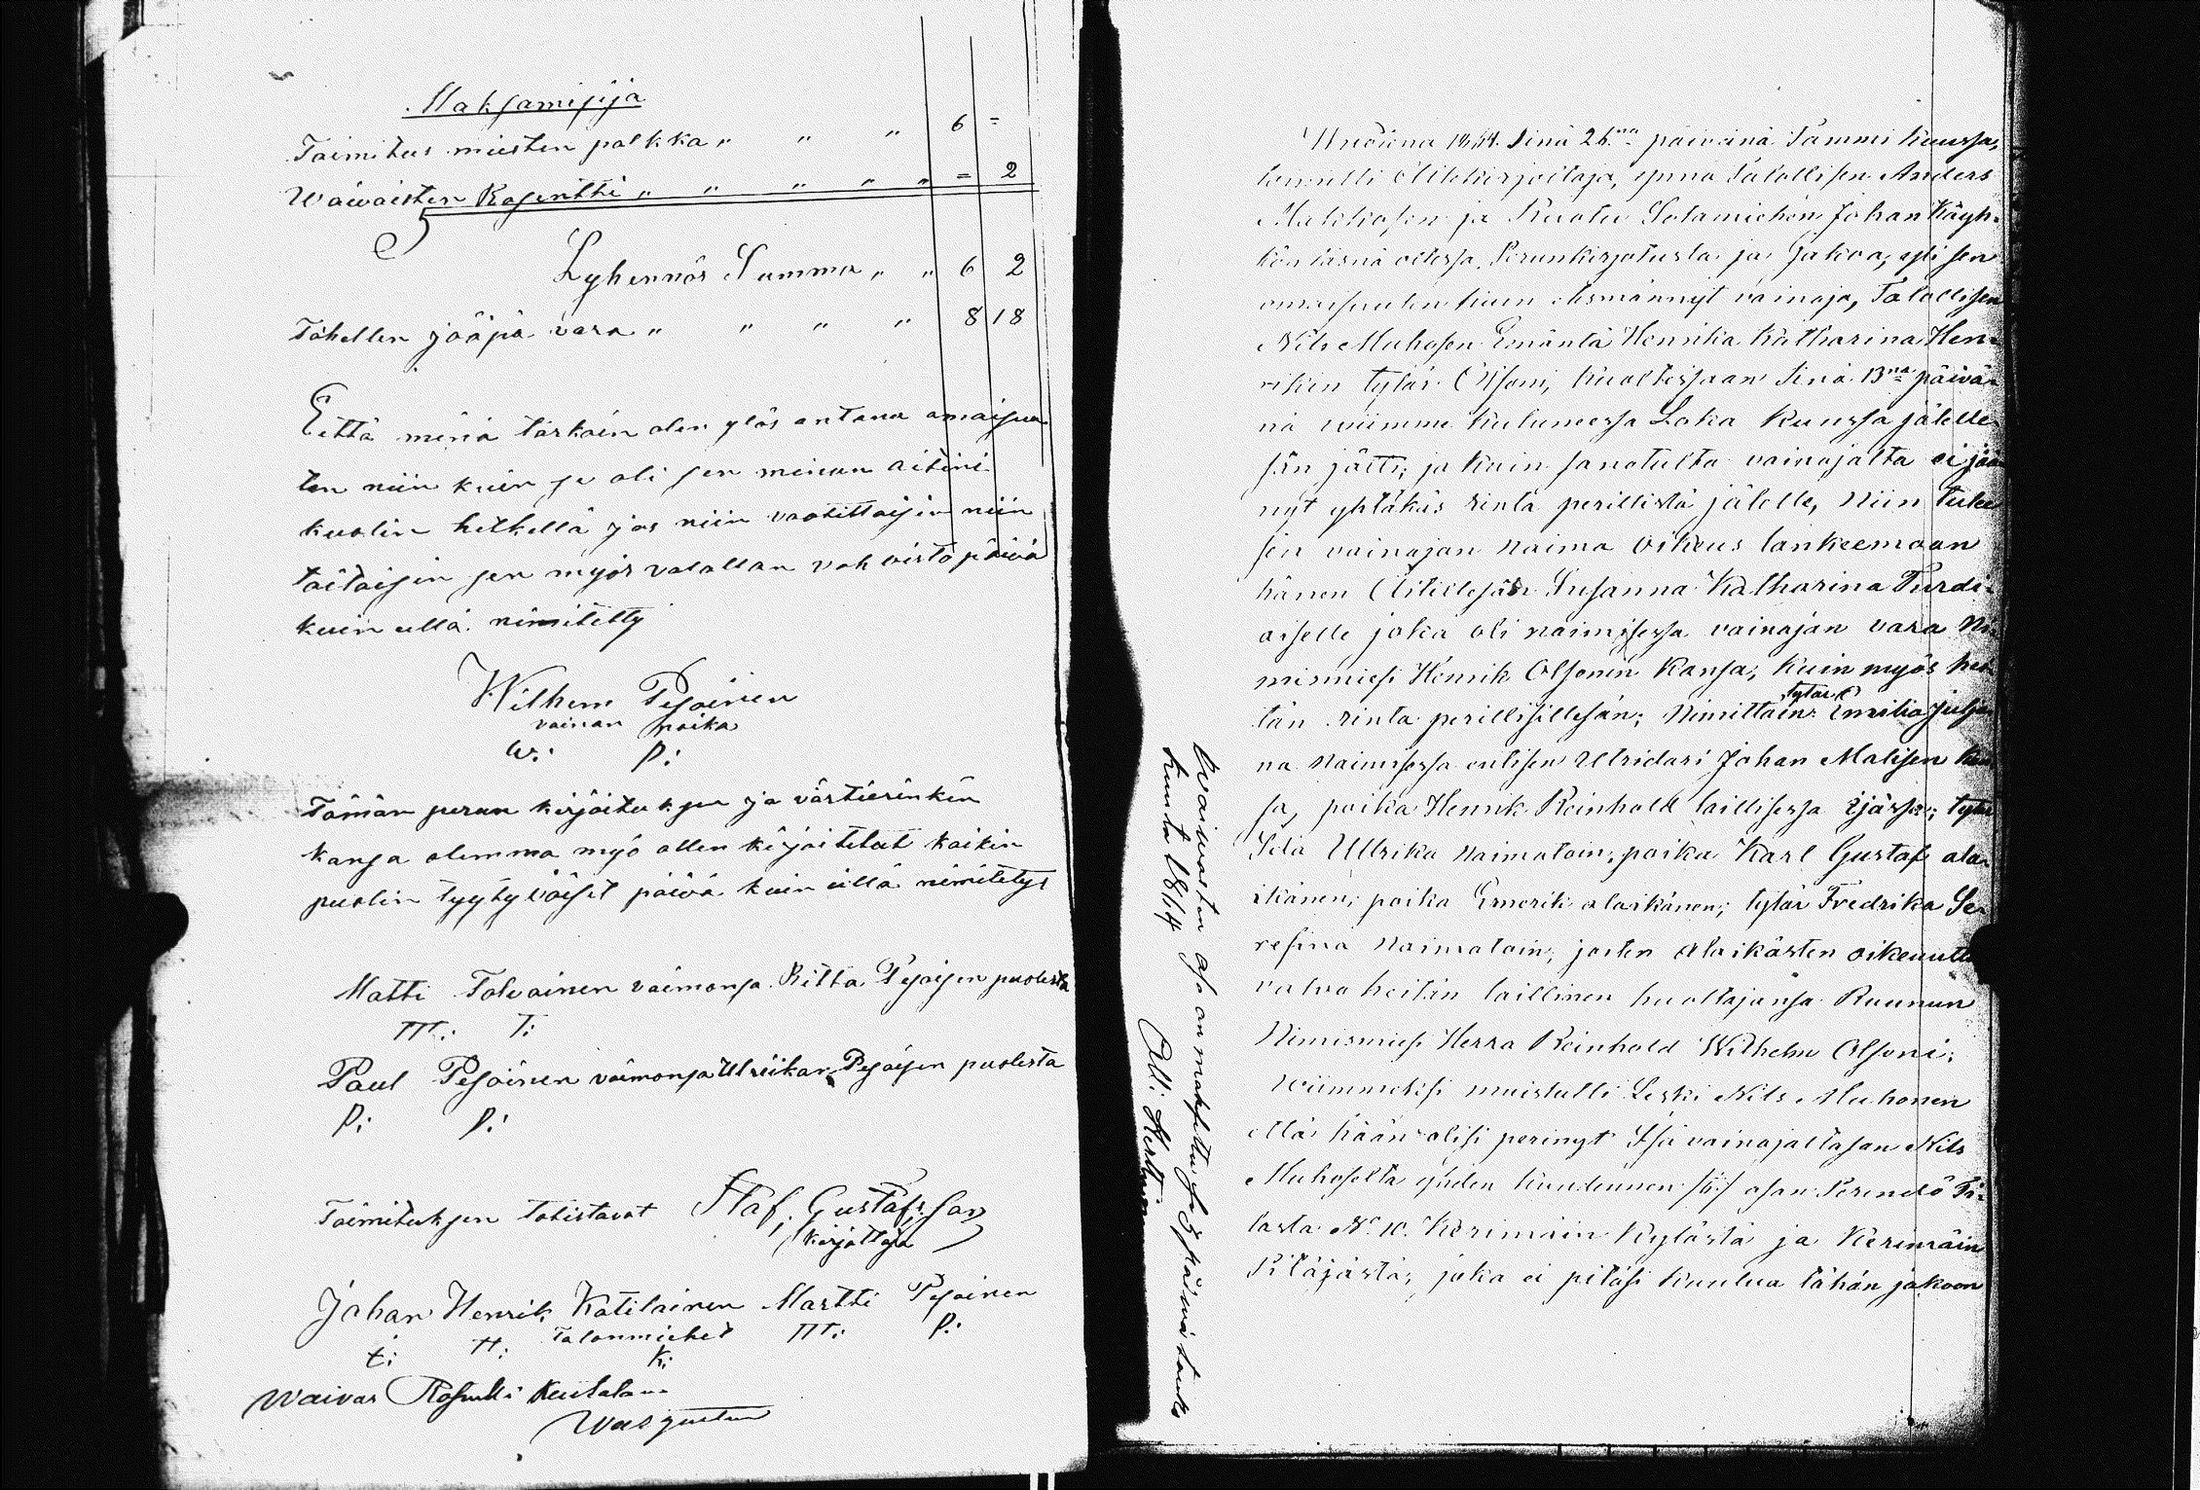 Maksamisija
Toimitus miesten palkka " " " 6 =
Waivaisten Rosentti " " " " " = 2
Lyhennös Summa " " 6 2
Tähellen jääpä vara " " " " 8 18
Että minä tarkain olen ylös antanu omaisuu
ten niin kuin se oli sen minun äitini
kuolin hetkellä jos niin vaatittaisin niin
taitaisin sen myös valallan vahvista päivä
kuin ullä nimitetty
Wilhem Pesoinen
vainan poika
W: P:
Tämän perun kirjoituksen ja värtierinkin
kansa olemma myö allen kirjoitetut kaikin
puolin tyytyväiset päivä kuin üllä nimitetys
Matti Tolvainen vaimonsa Ritta Pesoisen puolesta
M: T:
Paul Pesoinen vaimonsa Ulriikan Pesoisen puolesta
P: P:
Toimituksen todistavat Staf. Gustafsson
kirjottaja
Johan Henrik Kotilainen Martti Pesoinen
talonmiehet
t: H: K: M: P:
Waivas Rosentti
Wuonna 1814. Sinä 26.na päivänä Tammi kuussa,
toimitti Allekirjoittaja, ynnä Talollisen Anders
Makkosen ja Ruotu Sotamiehen Johan Käyh-
kön läsnä ollessa, Perunkirjotusta ja Jakoa, yli sen
omaisuuden kuin edesmännyt vainaja, Talollisen
Nils Muhosen Emäntä Henrika Katharina Hen-
rikin tytär Olsoni, kuoltessaan Sinä 13na päivä-
nä wiimme kuluneessa Loka kuussa jälelle-
sän jätti; ja kuin sanotulta vainajalta ei jää
nyt yhtäkäs rintä perillistä jälelle, Niin tulee
sen vainajan Naima Oikeus lankeemaan
hänen Äitillesän Susanna Katharina Turdi-
aiselle joka oli naimisessa vainajan vara Ni-
mismiesi Henrik Olsonin Kansa, kuin myös hei-
dän rinta perillisillesän; Nimittäin: tytär Emilia Julja
na Naimisessa entisen Ulridari Johan Malisen kan
sa, poika Henrik Reinhold laillisessa ijässä; tytär
Ida Ullrika Naimatoin; poika Karl Gustaf ala-
ikänen; poika Emerik alaikänen; tytär Fredrika Se-
refina Naimatoin; joiden Alaikästen oikeutta
valvo heitän laillinen huoltajansa Ruunun
Nimismiesi Herra Reinhold Wilhelm Olsoni;
Wiimmeksi muistutti Leski Nils Muhonen
että hään olisi perinyt Isä vainajaltasan Nils
Muhoselta yhden kuudennen /6:/ osan Perindö Ta-
losta No 10. Kerimäin Kylästä ja Kerimäin
Pitäjästä; joka ei pitäsi kuulua tähän jakoon
Waivasten osa on maksettu
kuuta 1814